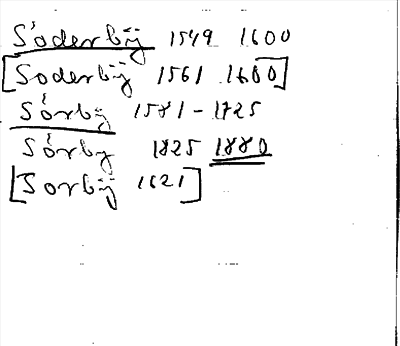 Söderbÿ 1549 1600
[Soderbÿ 1561 1600]
Sörby 1581 - 1725
Sörby 1825 1880
[Sorbÿ 1621]